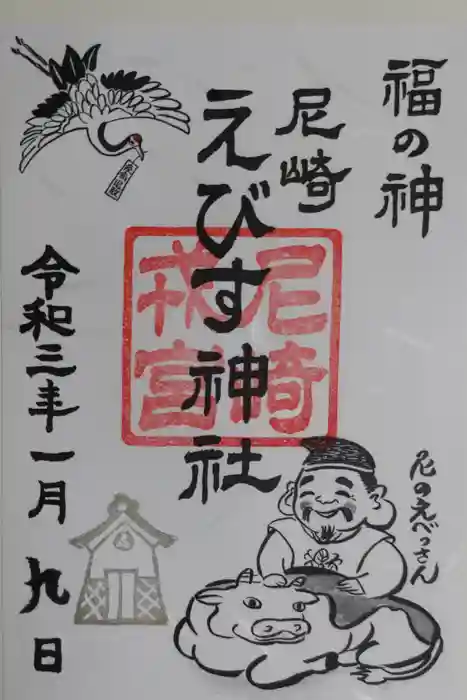 福の神
尼崎
えびす神社
尼崎
戎宮
令和三年一月九日
尼のえべっさん